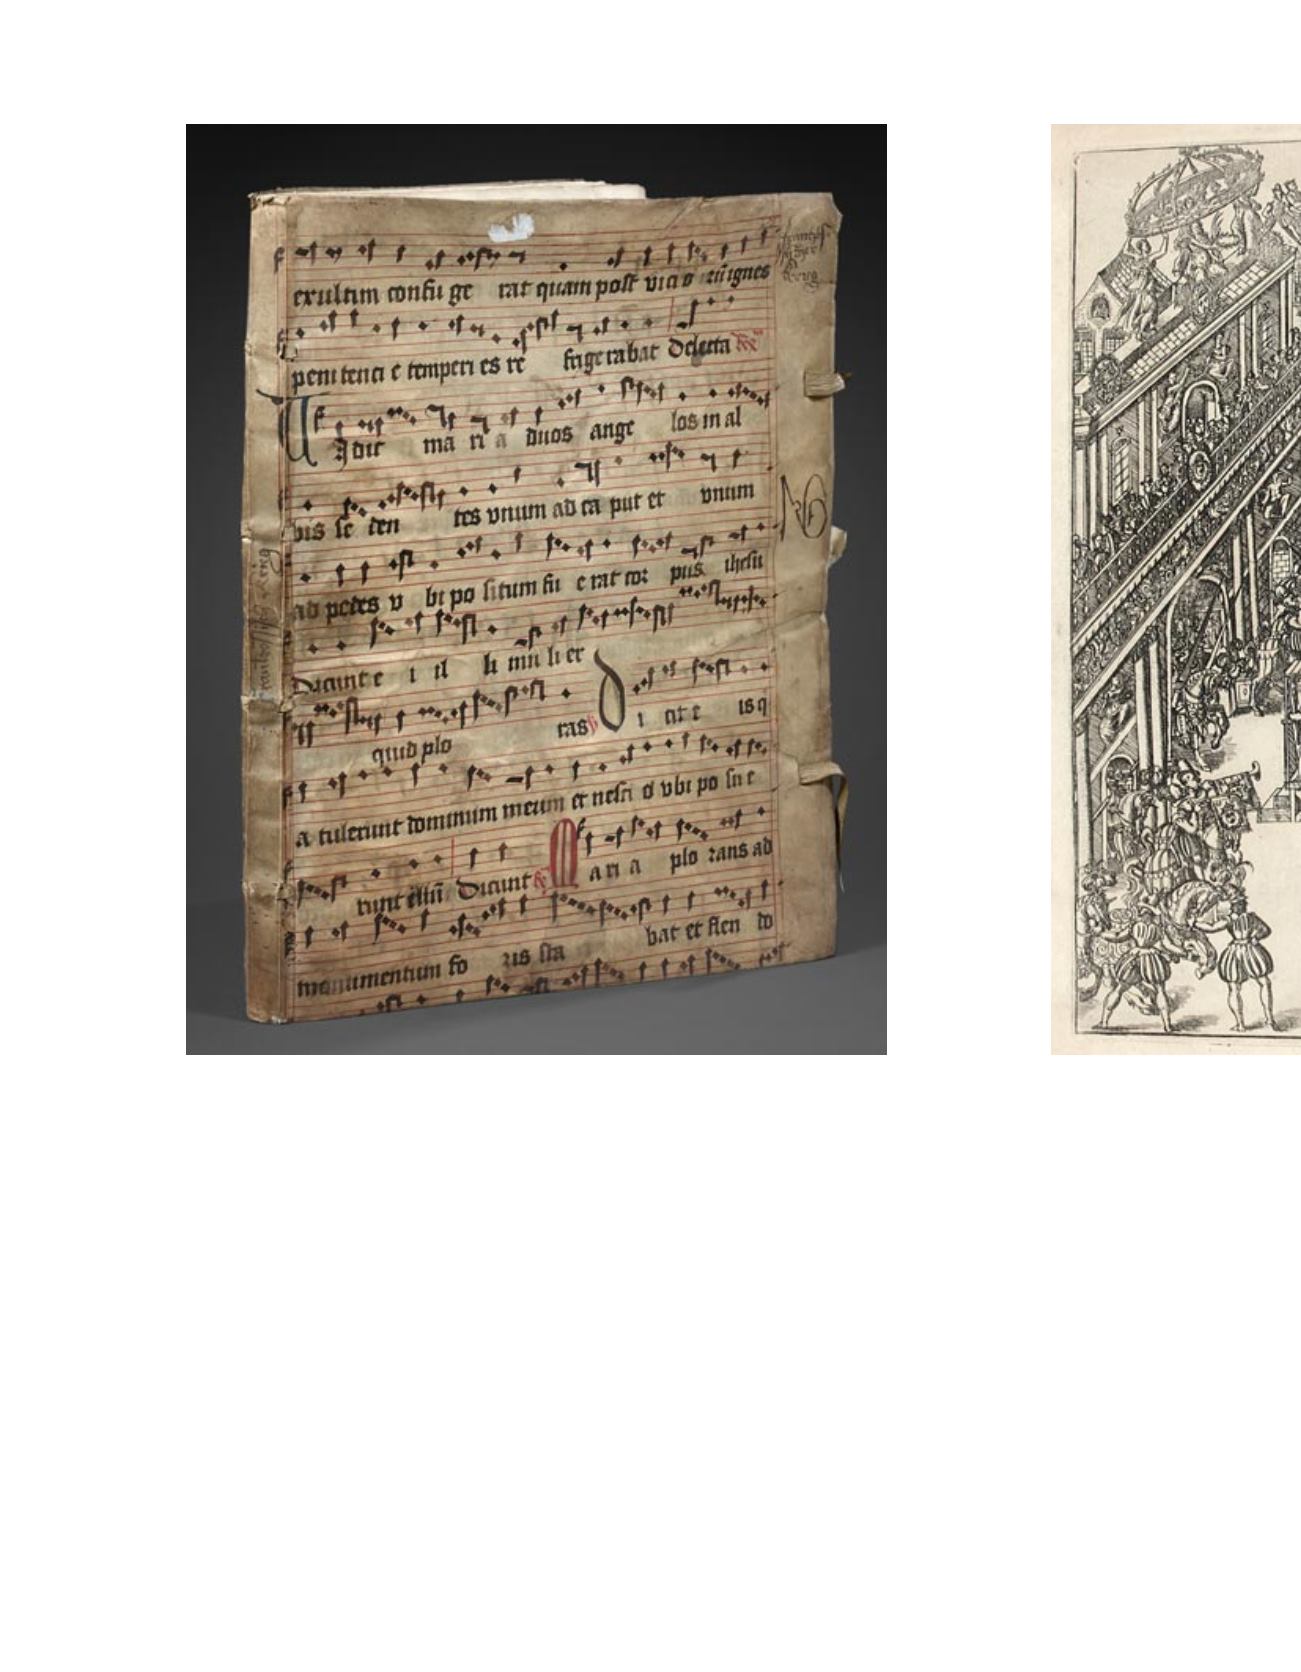 exultim confu ge rat quam post vicio
peni tenci e temperi es re frige rabat Delecta
Vidit ma ri a duos ange los in al
bis se den tes vnum ad ca put et vnum
ad pedes v bi po situm fu e rat cor pus ihesu
Dicunt e i il li mu li er
quid plo ras Di cit e is q
a tulerunt dominum meum et nesci o vbi po su e
runt Dicunt Mari a plo rans ad
monumentum fo ris sta bat et flen do